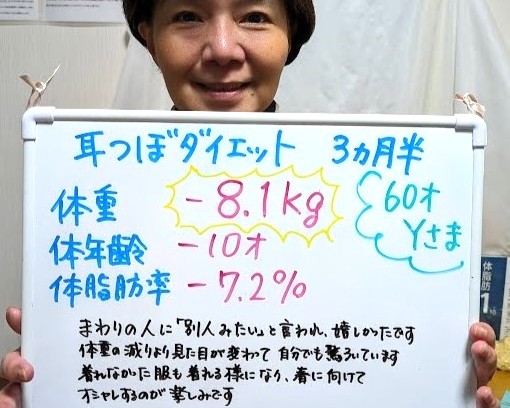 耳つぼダイエット 3ヵ月半
体重 -8.1kg
60才
Yさま
体年齢 -10才
体脂肪率 -7.2%
まわりの人に「別人みたい」と言われ、嬉しかったです
体重の減りより見た目が変わって 自分でも驚いています
着れなかった服も着れる様になり、春に向けて
オシャレするのが楽しみです
体脂肪
1kg